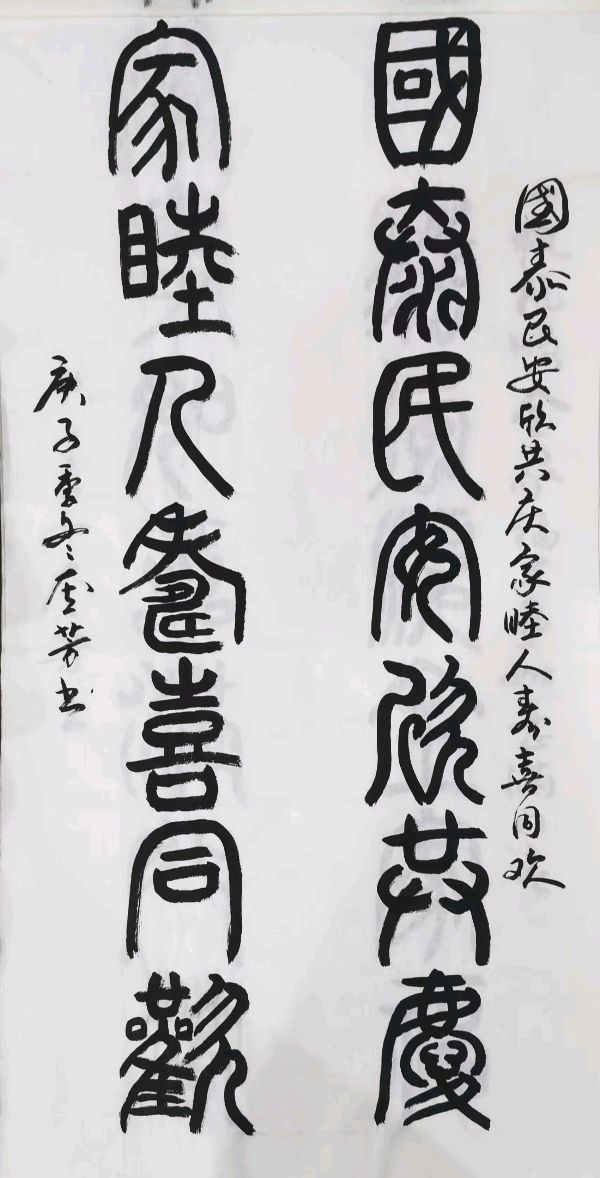 國泰民安欣共庆家睦人寿喜同欢
國泰民安欣共慶
家睦人壽喜同歡
庚子季冬芳书